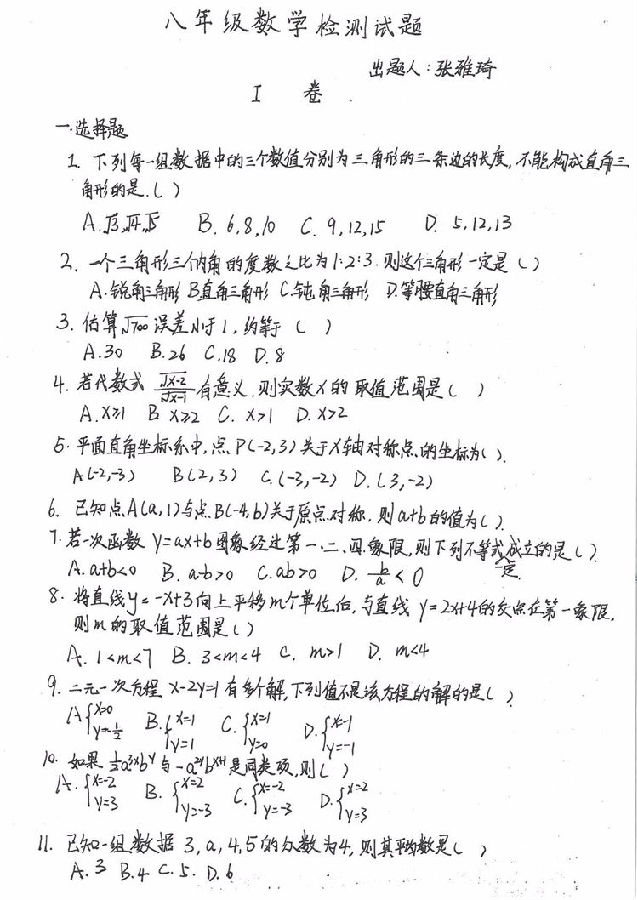 八年级数学检测试题
出题人:张雅琦
I 卷
一.选择题
1. 下列每一组数据中的三个数值分别为三角形的三条边的长度,不能构成直角三
角形的是.( )
A.√3,√4,√5 B. 6,8,10 C. 9,12,15 D. 5,12,13
2. 一个三角形三个内角的度数之比为1:2:3.则这个三角形一定是( )
A.锐角三角形 B直角三角形 C.钝角三角形 D.等腰直角三角形
3. 估算√700误差小于1,约等于( )
A.30 B.26 C.18 D.8
4. 若代数式 √x-2/√x-1 有意义.则实数x的取值范围是( )
A. x≥1 B x≥2 C. x>1 D. x>2
5. 平面直角坐标系中,点P(-2,3)关于X轴对称点的坐标为( ).
A(-2,-3) B(2,3) C.(-3,-2) D.(3,-2)
6. 已知点A(a,1)与点B(-4,b)关于原点对称.则a+b的值为( ).
7. 若一次函数y=ax+b图象经过第一、二、四象限,则下列不等式一定成立的是( )
A. a+b<0 B. a-b>0 C. ab>0 D. b/a<0
8. 将直线y=-x+3向上平移m个单位后,与直线y=2x+4的交点在第一象限,
则m的取值范围是( )
A. 1<m<7 B. 3<m<4 C. m>1 D. m<4
9. 二元一次方程 x-2y=1有多个解,下列值不是该方程的解的是( ).
A{x=0 y=-1/2 B.{x=1 y=1 C.{x=1 y=0 D.{x=-1 y=-1
10. 如果1/2a³ˣbʸ与-a²ʸbˣ⁺¹是同类项,则( )
A.{x=-2 y=3 B.{x=2 y=-3 C.{x=-2 y=-3 D.{x=2 y=3
11. 已知一组数据3,a,4,5的众数为4,则其平均数是( )
A.3 B.4 C.5. D.6